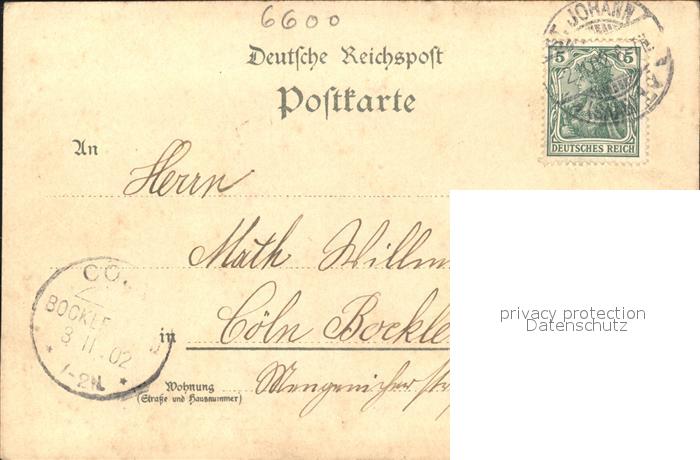 6600
Deutsche Reichspost
Postkarte
ST. JOHANN
5 5
DEUTSCHES REICH
An
Herrn
Math Willm
privacy protection
Datenschutz
CÖ
BOCKLE
3 11 02
1-2N.
in Cöln Bockle
Wohnung
(Straße und Hausnummer)
Mengenicherstr